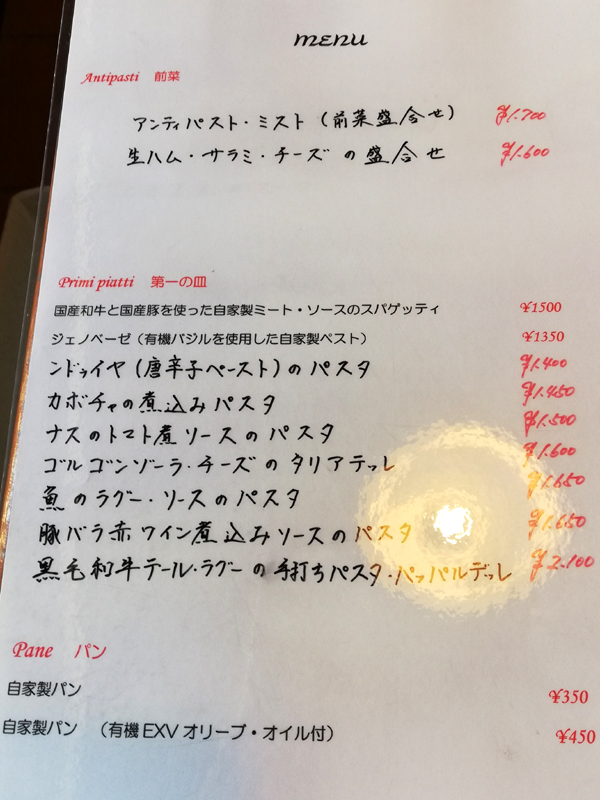 MENU
Antipasti 前菜
アンティパスト・ミスト(前菜盛合せ) ¥1.700
生ハム・サラミ・チーズの盛合せ ¥1.600
Primi piatti 第一の皿
国産和牛と国産豚を使った自家製ミート・ソースのスパゲッティ ¥1500
ジェノベーゼ(有機バジルを使用した自家製ペスト) ¥1350
ンドゥイヤ(唐辛子ペースト)のパスタ ¥1.400
カボチャの煮込みパスタ ¥1.450
ナスのトマト煮ソースのパスタ ¥1.500
ゴルゴンゾーラ・チーズのタリアテッレ ¥1.600
魚のラグー・ソースのパスタ ¥1.650
豚バラ赤ワイン煮込みソースのパスタ ¥1.650
黒毛和牛テール・ラグーの手打ちパスタ・パッパルデッレ ¥2.100
Pane パン
自家製パン ¥350
自家製パン (有機EXVオリーブ・オイル付) ¥450